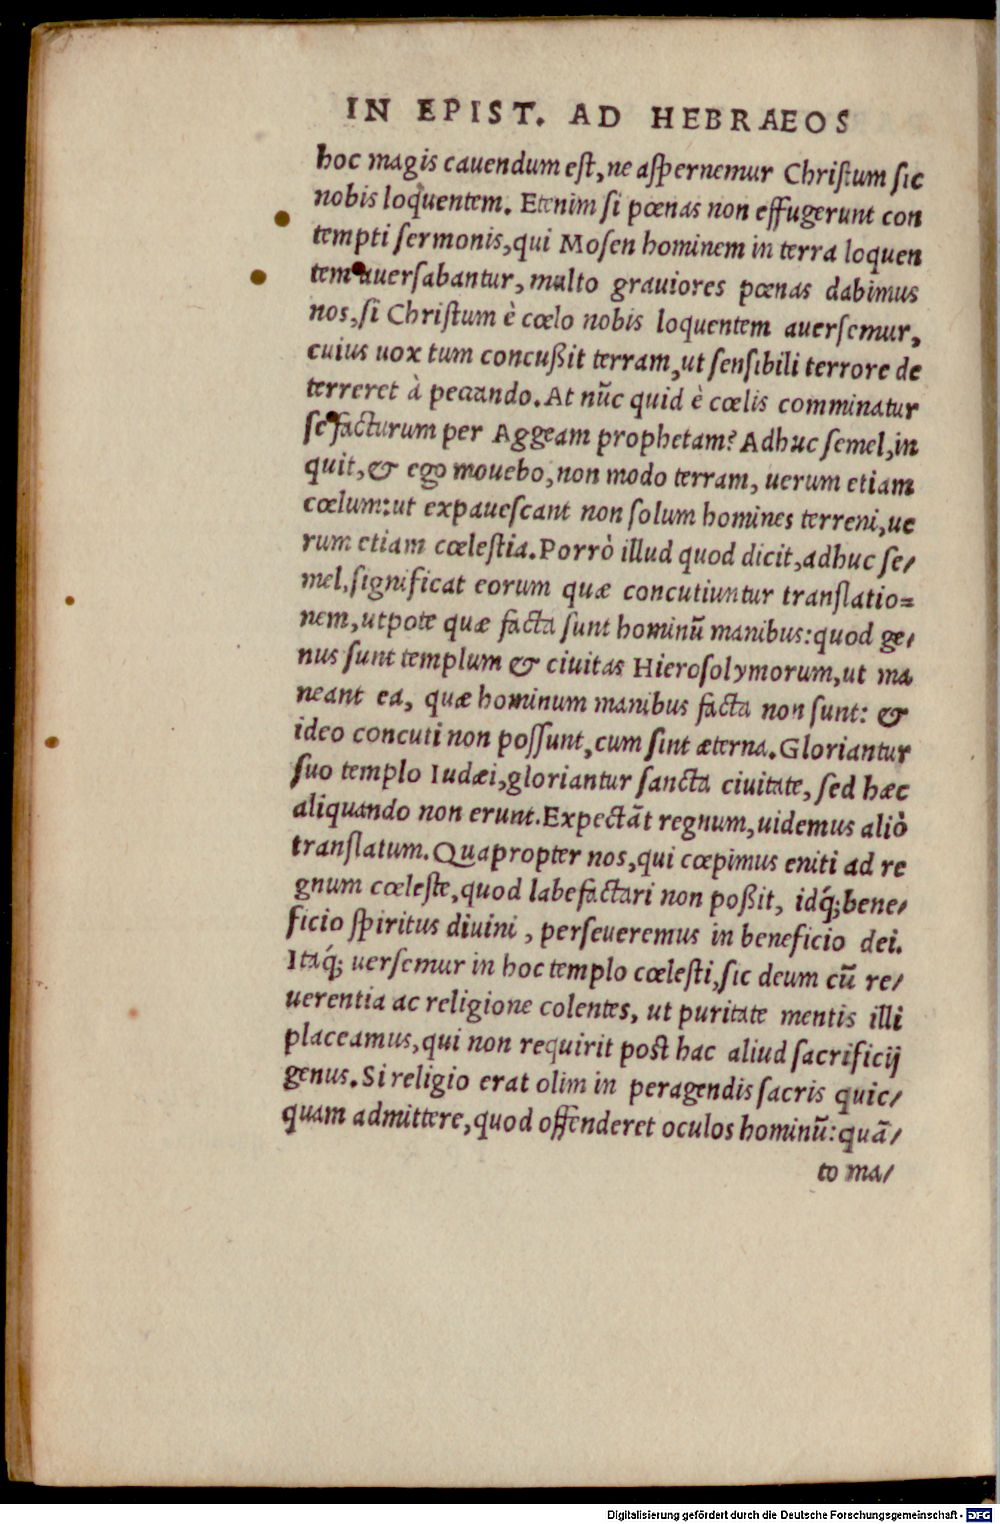 IN EPIST. AD HEBRAEOS
hoc magis cauendum est, ne aspernemur Christum sic
nobis loquentem. Etenim si pœnas non effugerunt con
tempti sermonis, qui Mosen hominem in terra loquen
tem auersabantur, multo grauiores pœnas dabimus
nos, si Christum è cœlo nobis loquentem auersemur,
cuius uox tum concußit terram, ut sensibili terrore de
terreret à peccando. At nũc quid è cœlis comminatur
se facturum per Aggeam prophetam? Adhuc semel, in
quit, & ego mouebo, non modo terram, uerum etiam
cœlum: ut expauescant non solum homines terreni, ue
rum etiam cœlestia. Porrò illud quod dicit, adhuc se/
mel, significat eorum quæ concutiuntur translatio=
nem, utpote quæ facta sunt hominũ manibus: quod ge/
nus sunt templum & ciuitas Hierosolymorum, ut ma
neant ea, quæ hominum manibus facta non sunt: &
ideo concuti non possunt, cum sint æterna. Gloriantur
suo templo Iudæi, gloriantur sancta ciuitate, sed hæc
aliquando non erunt. Expectãt regnum, uidemus aliò
translatum. Quapropter nos, qui cœpimus eniti ad re
gnum cœleste, quod labefactari non poßit, idq́; bene/
ficio spiritus diuini, perseueremus in beneficio dei.
Itaq́; uersemur in hoc templo cœlesti, sic deum cũ re/
uerentia ac religione colentes, ut puritate mentis illi
placeamus, qui non requirit post hac aliud sacrificij
genus. Si religio erat olim in peragendis sacris quic/
quam admittere, quod offenderet oculos hominũ: quã/
to ma/
Digitalisierung gefördert durch die Deutsche Forschungsgemeinschaft - DFG